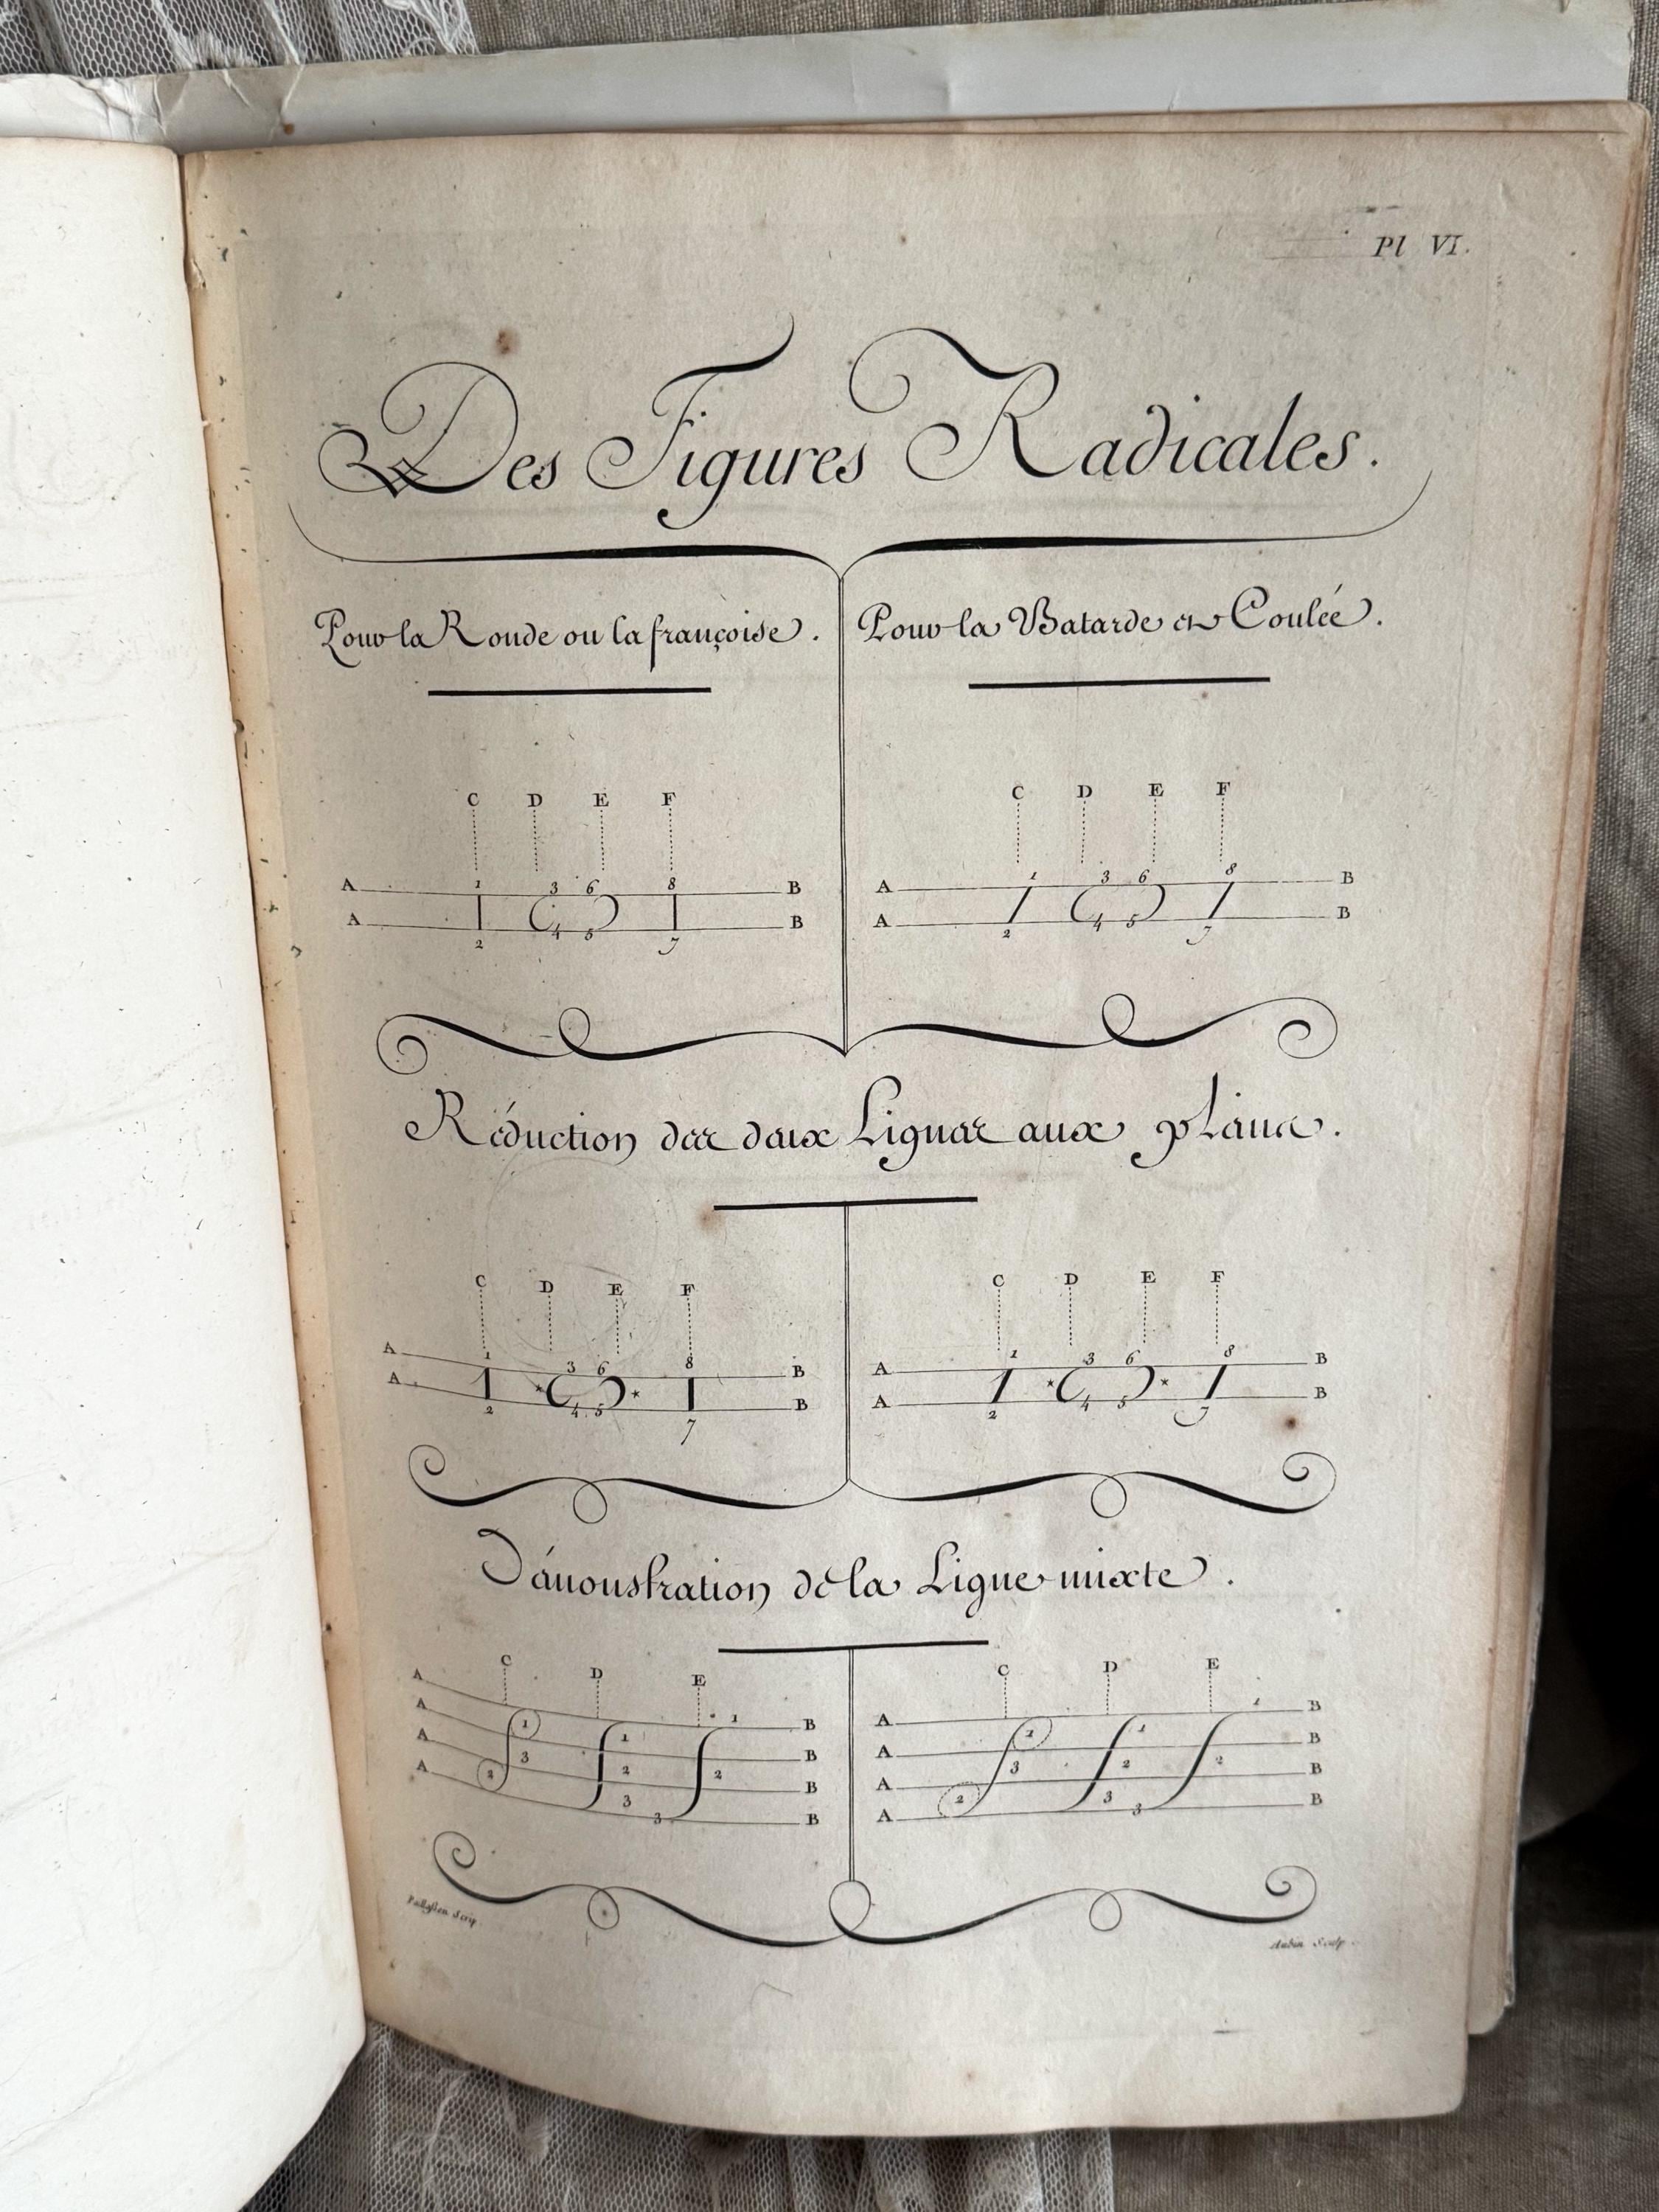 Pl VI.
Des Figures Radicales.
Pour la Ronde ou la françoise.
Pour la Batarde et Coulée.
C D E F
A 1 3 6 8 B
A B
2 4 5 7
C D E F
A 1 3 6 8 B
A B
2 4 5 7
Réduction des deux Lignes aux pleins.
C D E F
A 1 3 6 8 B
A * * B
2 4 5 7
C D E F
A 1 3 6 8 B
A * * B
2 4 5 7
Démonstration de la Ligne mixte.
C D E
A 1 1 1 B
A 3 2 2 B
A 2 3 B
A 3 B
C D E
A 1 1 1 B
A 3 2 2 B
A 2 3 B
A 3 B
Paillasson Scrip.
Aubin Sculp.